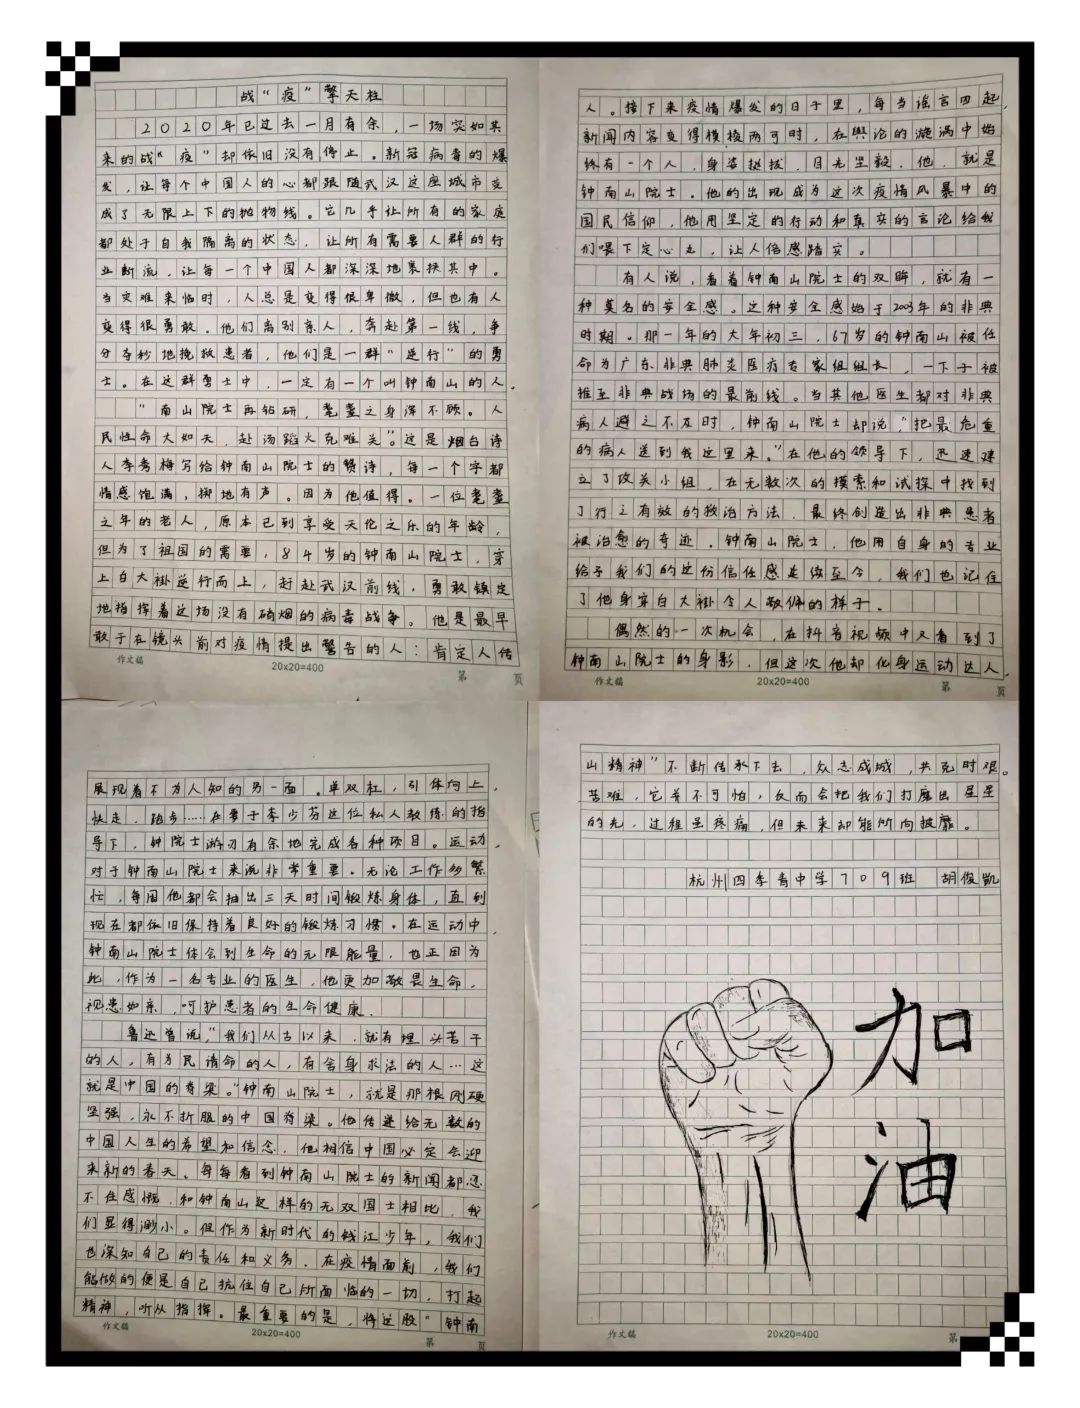 战“疫”擎天柱
2020年已过去一月有余，一场突如其
来的战“疫”却依旧没有停止。新冠病毒的爆
发，让每个中国人的心都跟随武汉这座城市变
成了无限上下的抛物线。它几乎让所有的家庭
都处于自我隔离的状态，让所有需要人群的行
业断流，让每一个中国人都深深地裹挟其中。
当灾难来临时，人总是变得很卑微，但也有人
变得很勇敢。他们离别亲人，奔赴第一线，争
分夺秒地挽救患者，他们是一群“逆行”的勇
士。在这群勇士中，一定有一个叫钟南山的人。
“南山院士再钻研，耄耋之身浑不顾。人
民性命大如天，赴汤蹈火克难关”。这是烟台诗
人李秀梅写给钟南山院士的赞诗，每一个字都
情感饱满，掷地有声。因为他值得。一位耄耋
之年的老人，原本已到享受天伦之乐的年龄，
但为了祖国的需要，84岁的钟南山院士，穿
上白大褂逆行而上，赶赴武汉前线，勇敢镇定
地指挥着这场没有硝烟的病毒战争。他是最早
敢于在镜头前对疫情提出警告的人：肯定人传
作文稿
20x20=400
第 页
人。接下来疫情爆发的日子里，每当谣言四起，
新闻内容变得模棱两可时，在舆论的漩涡中始
终有一个人，身姿挺拔，目光坚毅。他，就是
钟南山院士。他的出现成为这次疫情风暴中的
国民信仰，他用坚定的行动和真实的言论给我
们喂下定心丸，让人倍感踏实。
有人说，看着钟南山院士的双眸，就有一
种莫名的安全感。这种安全感始于2003年的非典
时期。那一年的大年初三，67岁的钟南山被任
命为广东非典肺炎医疗专家组组长，一下子被
推至非典战场的最前线。当其他医生都对非典
病人避之不及时，钟南山院士却说，“把最危重
的病人送到我这里来。”在他的领导下，迅速建
立了攻关小组，在无数次的摸索和试探中找到
了行之有效的救治方法，最终创造出非典患者
被治愈的奇迹。钟南山院士，他用自身的专业
给予我们的这份信任感延续至今，我们也记住
了他身穿白大褂令人敬佩的样子。
偶然的一次机会，在抖音视频中又看到了
钟南山院士的身影，但这次他却化身运动达人，
作文稿
20x20=400
第 页
展现着不为人知的另一面。单双杠，引体向上，
快走，跑步……在妻子李少芬这位私人教练的指
导下，钟院士游刃有余地完成各种项目。运动
对于钟南山院士来说非常重要。无论工作多繁
忙，每周他都会抽出三天时间锻炼身体，直到
现在都依旧保持着良好的锻炼习惯。在运动中，
钟南山院士体会到生命的无限能量，也正因为
此，作为一名专业的医生，他更加敬畏生命，
视患如亲，呵护患者的生命健康。
鲁迅曾说，“我们从古以来，就有埋头苦干
的人，有为民请命的人，有舍身求法的人…这
就是中国的脊梁。”钟南山院士，就是那根刚硬
坚强，永不折服的中国脊梁。他传递给无数的
中国人生的希望和信念，他相信中国必定会迎
来新的春天。每每看到钟南山院士的新闻都忍
不住感慨，和钟南山这样的无双国士相比，我
们显得渺小。但作为新时代的钱江少年，我们
也深知自己的责任和义务。在疫情面前，我们
能做的便是自己抗住自己所面临的一切，打起
精神，听从指挥。最重要的是，将这股“钟南
作文稿
20x20=400
第 页
山精神”不断传承下去，众志成城，共克时艰。
苦难，它并不可怕，反而会把我们打磨出星星
的光，过程虽疼痛，但未来却能所向披靡。
杭州四季青中学709班 胡俊凯
加
油
作文稿
20x20=400
第